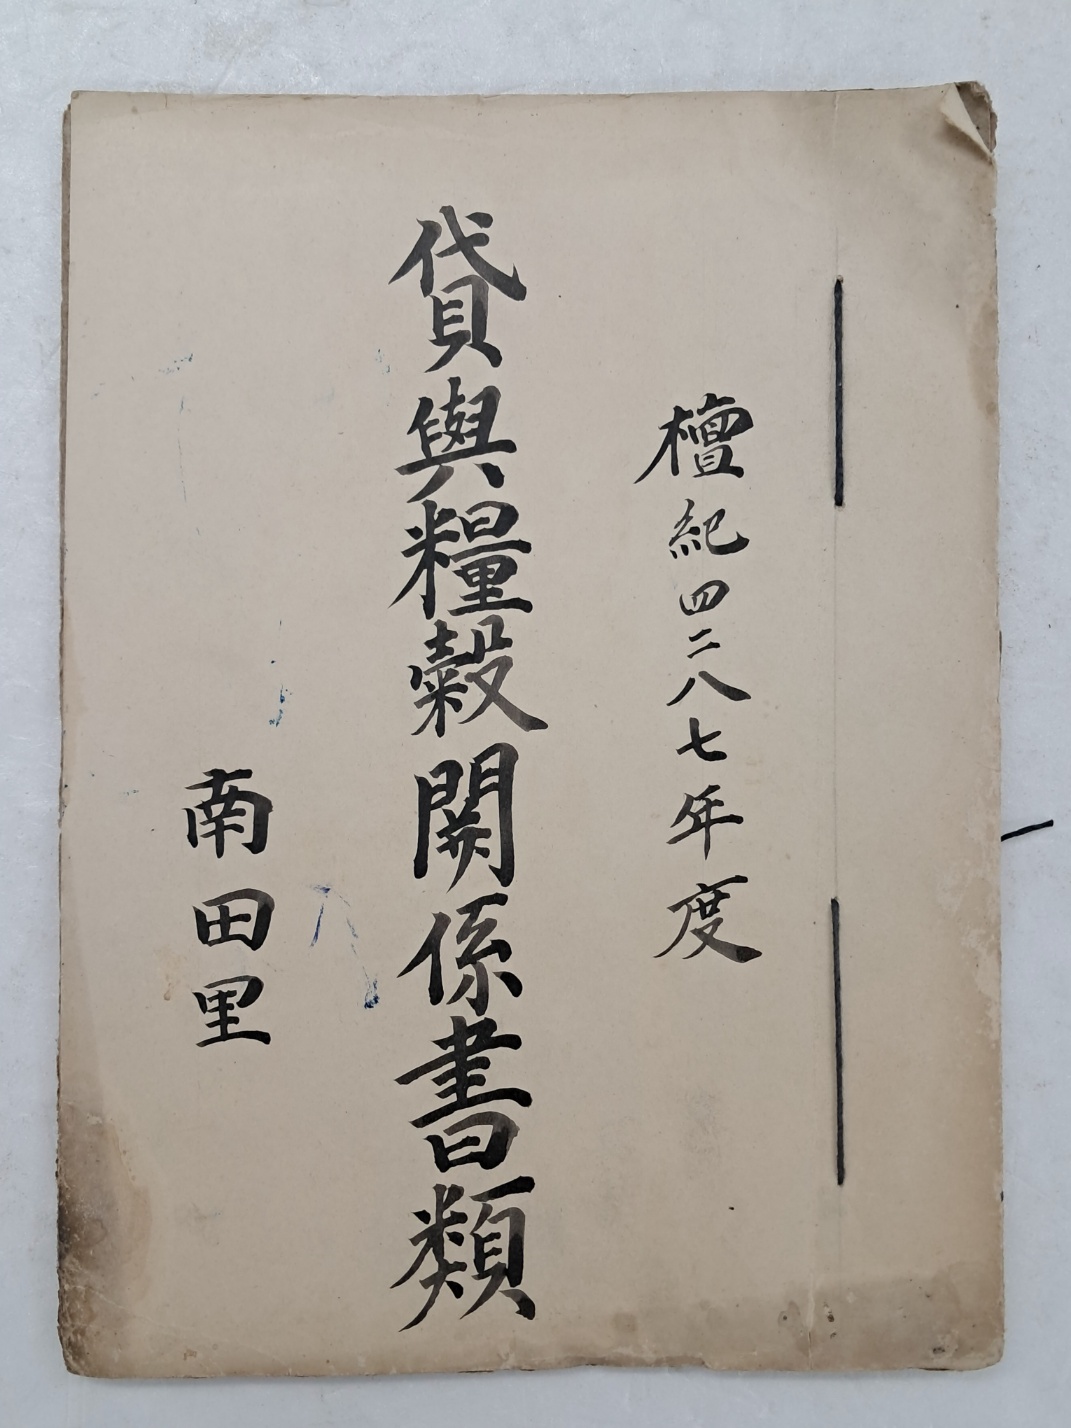 檀紀四二八七年度
貸與糧穀關係書類
南田里